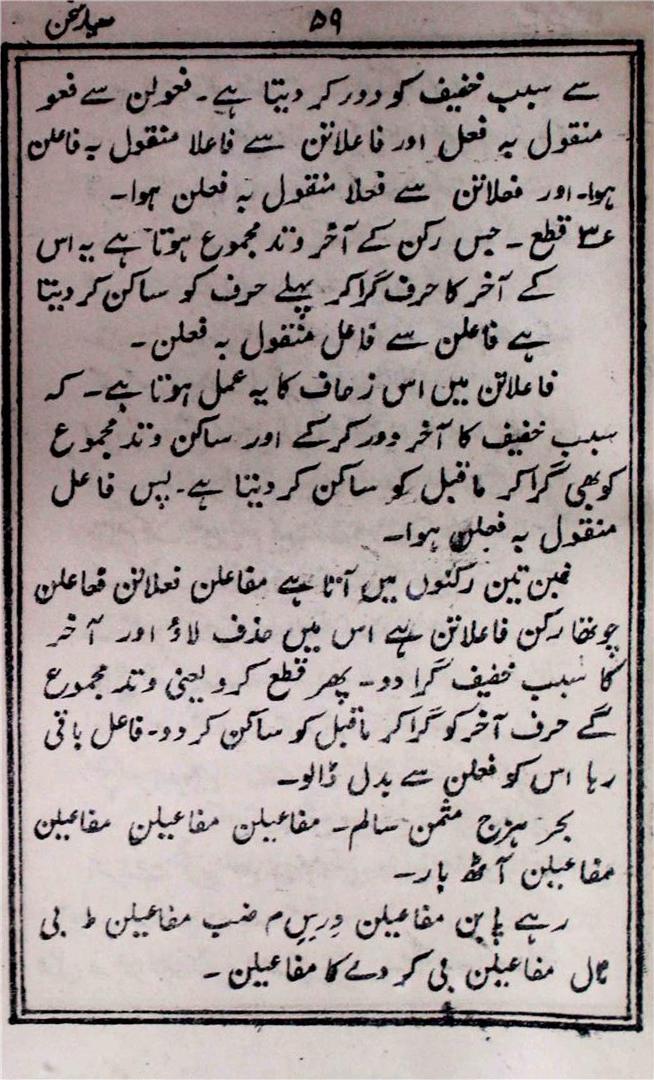 ۵۹ معیارِ سخن
سے سبب خفیف کو دور کر دیتا ہے۔ فعولن سے فعو
منقول بہ فعل اور فاعلاتن سے فاعلا منقول بہ فاعلن
ہوا۔ اور فعلاتن سے فعلا منقول بہ فعلن ہوا۔
۳۶ قطع ۔ جس رکن کے آخر وتد مجموع ہوتا ہے یہ اس
کے آخر کا حرف گرا کر پہلے حرف کو ساکن کر دیتا
ہے فاعلن سے فاعل منقول بہ فعلن ۔
فاعلاتن میں اس زحاف کا یہ عمل ہوتا ہے۔ کہ
سبب خفیف کا آخر دور کرکے اور ساکن وتد مجموع
کو بھی گرا کر ماقبل کو ساکن کر دیتا ہے۔ پس فاعل
منقول بہ فعلن ہوا۔
خبن تین رکنوں میں آتا ہے مفاعلن فعلاتن فعاعلن
چوتھا رکن فاعلاتن ہے اس میں حذف لاؤ اور آخر
کا سبب خفیف گرا دو۔ پھر قطع کرو یعنی وتد مجموع
گے حرف آخر کو گرا کر ماقبل کو ساکن کر دو۔ فاعل باقی
رہا اس کو فعلن سے بدل ڈالو۔
بحر ہزج مثمن سالم۔ مفاعیلن مفاعیلن مفاعیلن
مفاعیلن آٹھ بار۔
رہے پابن مفاعیلن دِرِسِ م ضب مفاعیلن ط بی
مال مفاعیلن بی کر دے کا مفاعیلن ۔